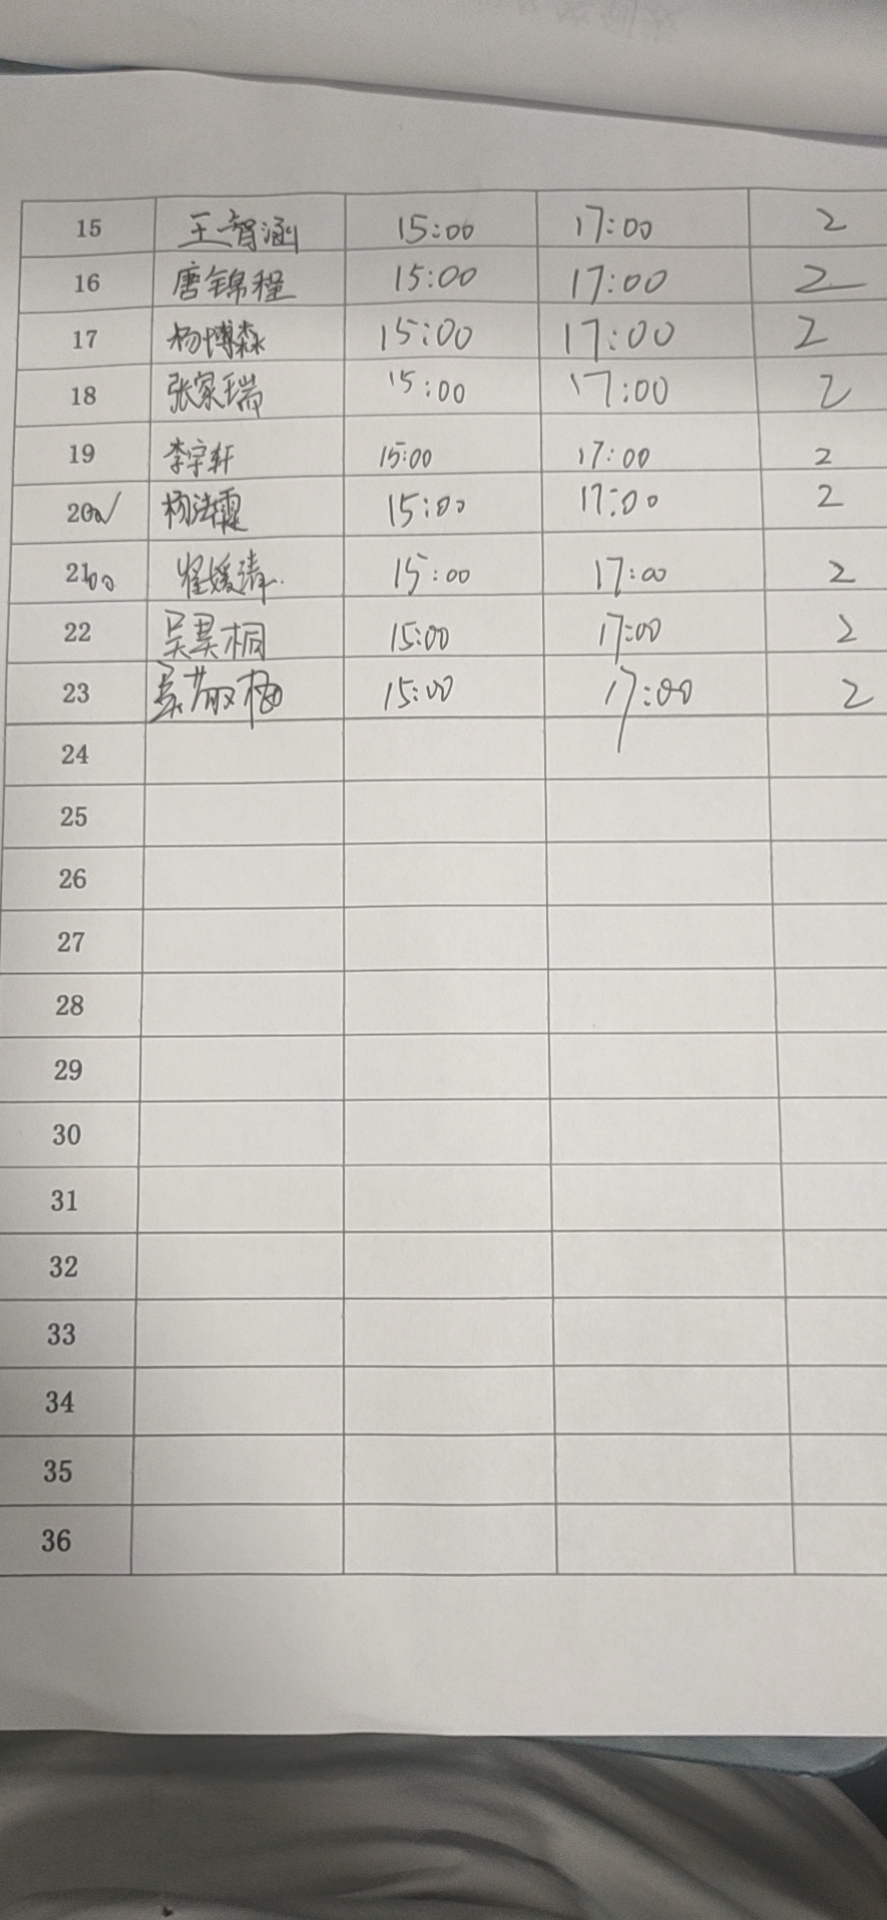 15 王智涵 15:00 17:00 2
16 唐锦程 15:00 17:00 2
17 杨博森 15:00 17:00 2
18 张家瑞 15:00 17:00 2
19 李宇轩 15:00 17:00 2
20 15:00 17:00 2
21 翟媛清 15:00 17:00 2
22 吴昊桐 15:00 17:00 2
23 15:00 17:00 2
24
25
26
27
28
29
30
31
32
33
34
35
36